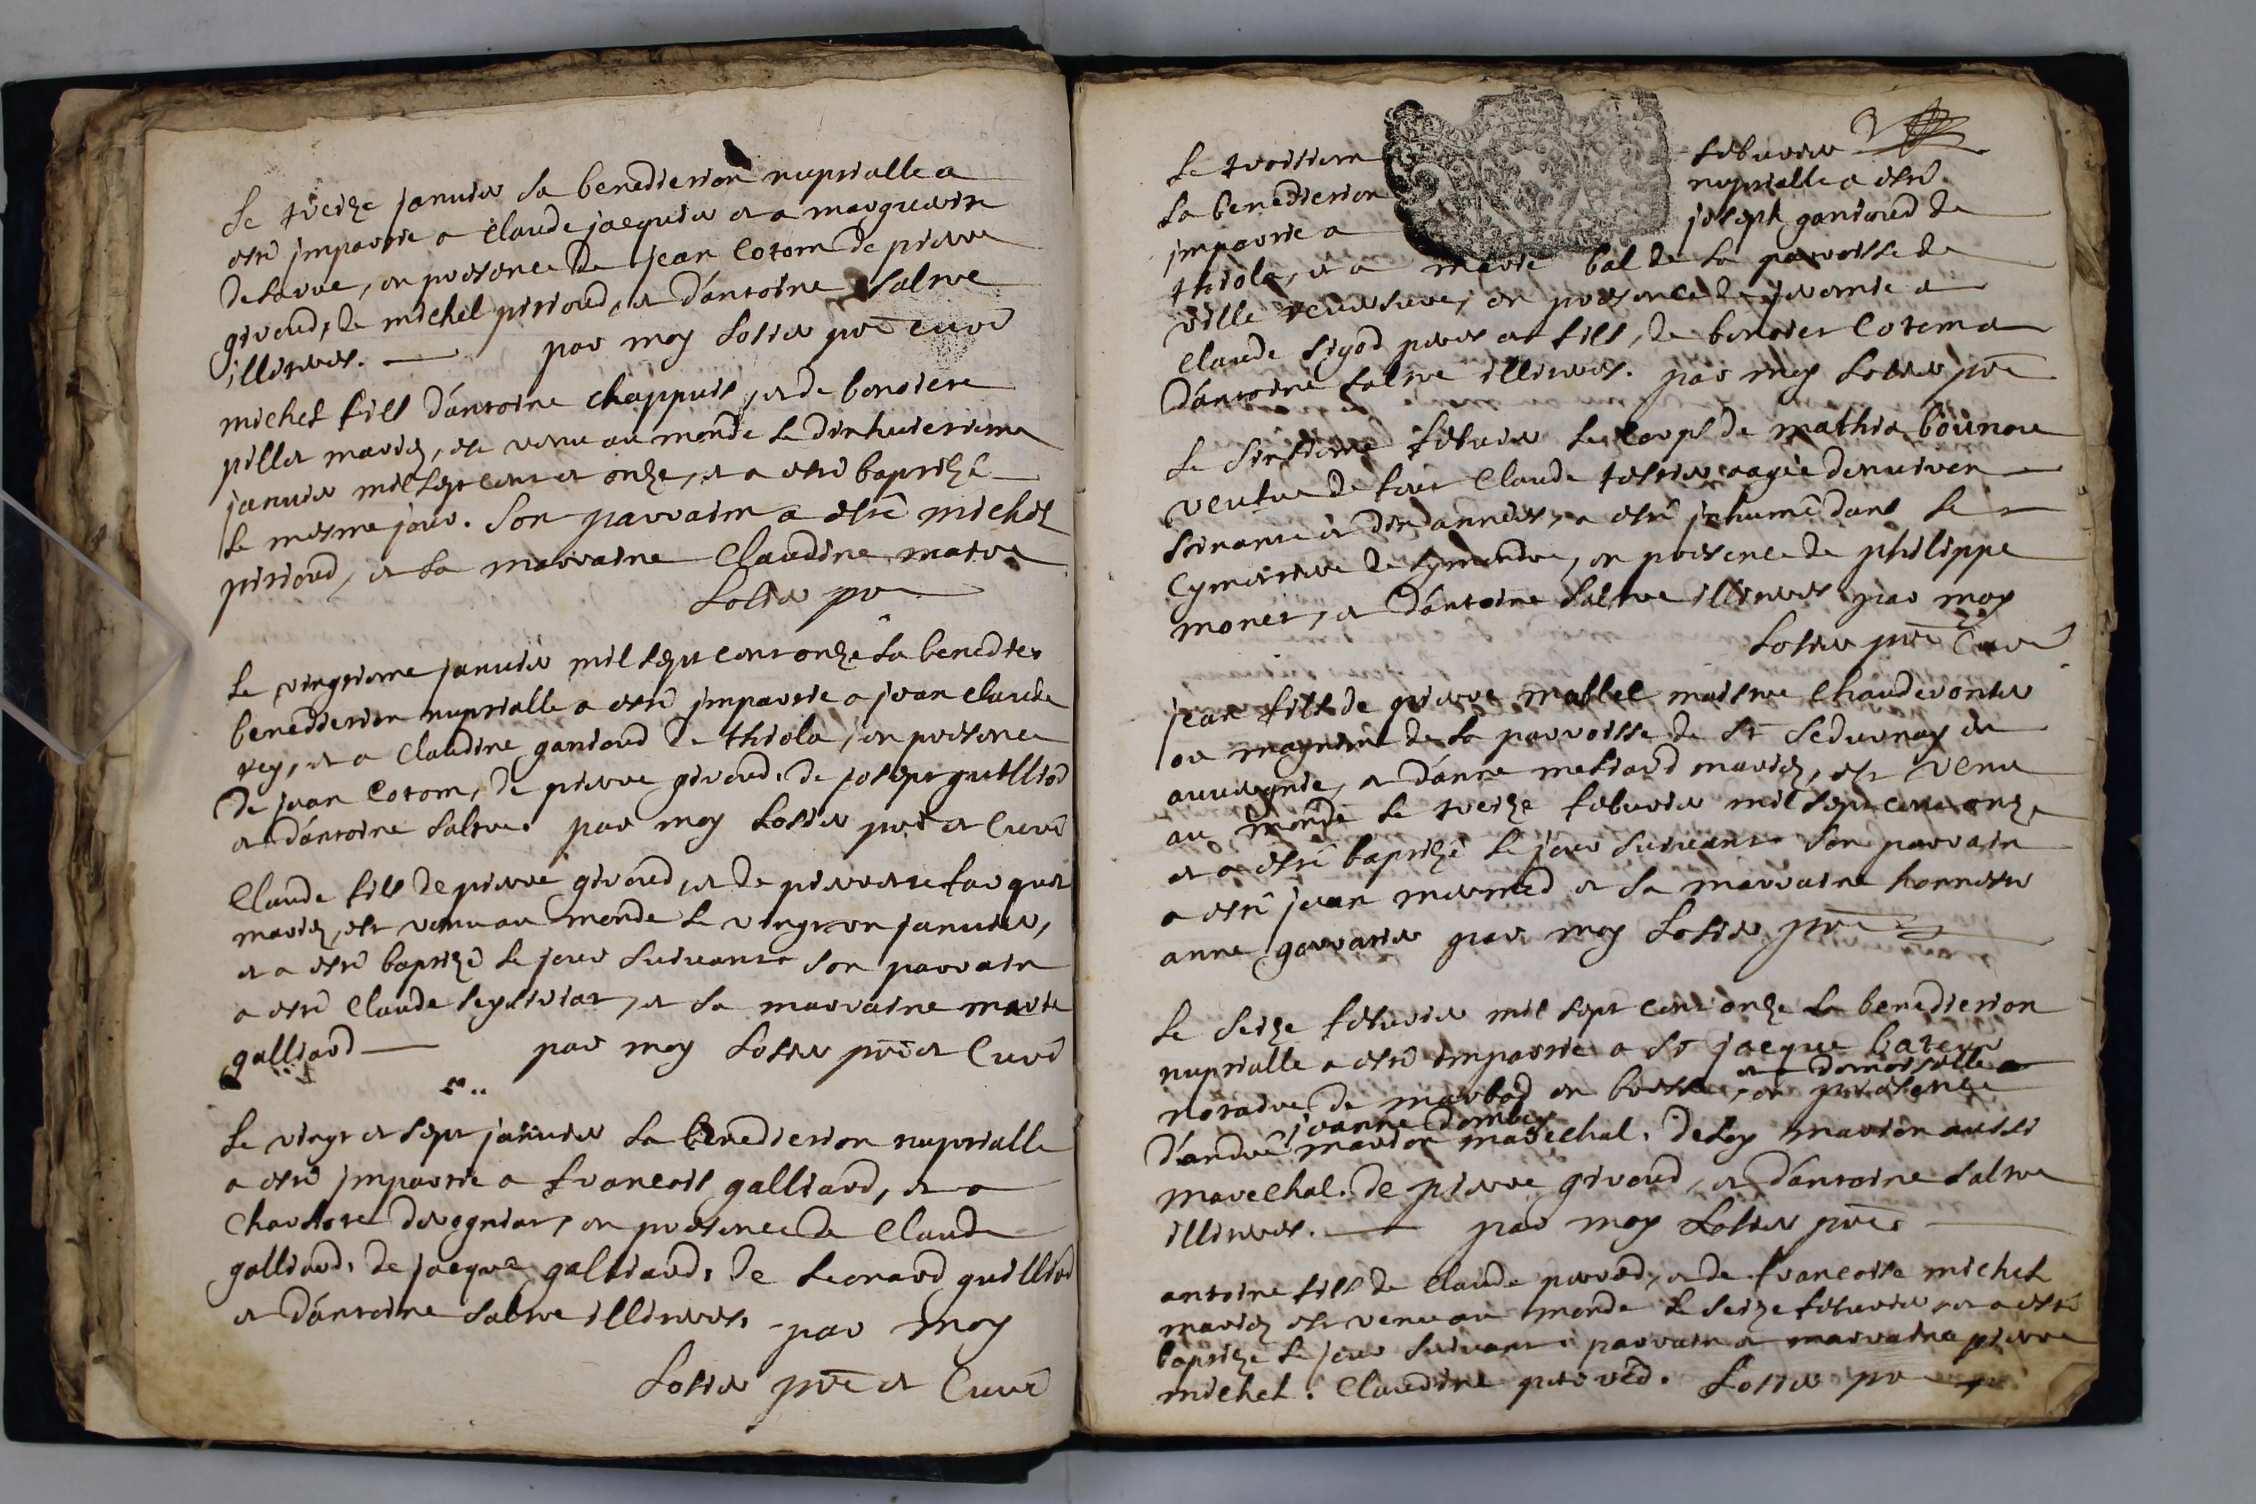 Le treize januier la benediction nuptialle a
esté jmpartie a Claude jacquier et a marguerite
delarue, en presence de jean Cotom de pierre
giroud, de michel pirioud, et d'antoine Salme
illitrés. par moy Losier pre curé
michel fils d'antoine chappuis, et de benoiste
pillet mariez, est venu au monde le dixhuictieme
januier mil sept cent et onze, et a esté baptizé
le mesme jour. Son parrain a esté michel
pirioud, et la marraine Claudine maitre
Losier pre
Le vingtieme januier mil sept cent onze la benedic
benediction nuptialle a esté jmpartie a jean claude
rey, et a Claudine ganioud de thiola, en presence
de jean Cotom, de pierre giroud, de josept guilliod
et d'antoine Salme. par moy Losier pre et Curé
Claude fils de pierre giroud, et de pierrette farquet
mariez, est venu au monde le vingt un januier,
et a esté baptizé le jour suiuant. Son parrain
a esté Claude , et la marraine marie
galliard par moy Losier pre et Curé
Le vingt et sept januier la benediction nuptialle
a esté jmpartie a francois galliard, et a
Charlote derogniat, en presence de Claude
galliard, de jacque galliard, de Leonard guilliod
et d'antoine Salme illitrés, par moy
Losier pre et Curé
Le troisieme feburier
la benediction nuptialle a esté
jmpartie a joseph ganioud de
thiola, et a marie bal de la parroisse de
ville reuersure, en presence de jeromie a
Claude sigod pere et fils, de benoist Cotom et
d'antoine Salme illitrés. par moy Losier pre
Le sixsieme feburier le corps de mathia
veufue de feu Claude tessier aagée denuiron
soixante et dix années, a esté jnhumé dans le
Cymetiere de Symandre, en presence de philippe
monet, et d'antoine Salme illitrés par moy
Losier pre Curé
jean fils de pierre maistre Chauderonier
ou magnin de la parroisse de St en
auuergnie, et d'anne mariez, est venu
au monde le treize feburier mil sept cent onze
et a esté baptizé le jour suiuant. Son parrain
a esté jean mermed et la marraine honneste
anne gauarier par moy Losier pre
Le Seize feburier mil sept cent onze la benediction
nuptialle a esté impartie a Sr jacque
notaire de marbod en bresse, et a damoiselle
jeanne Dombey en presence
d'andré marion marechal, de Loy marion aussi
marechal. de pierre giroud, et d'antoine Salme
illitrés. par moy Losier pre
antoine fils de Claude perrod, et de francoise michel
mariez est venu au monde le seize feburier et a esté
baptize le jour suiuant parrain et marraine pierre
michel. Claudine perrod. Losier pre